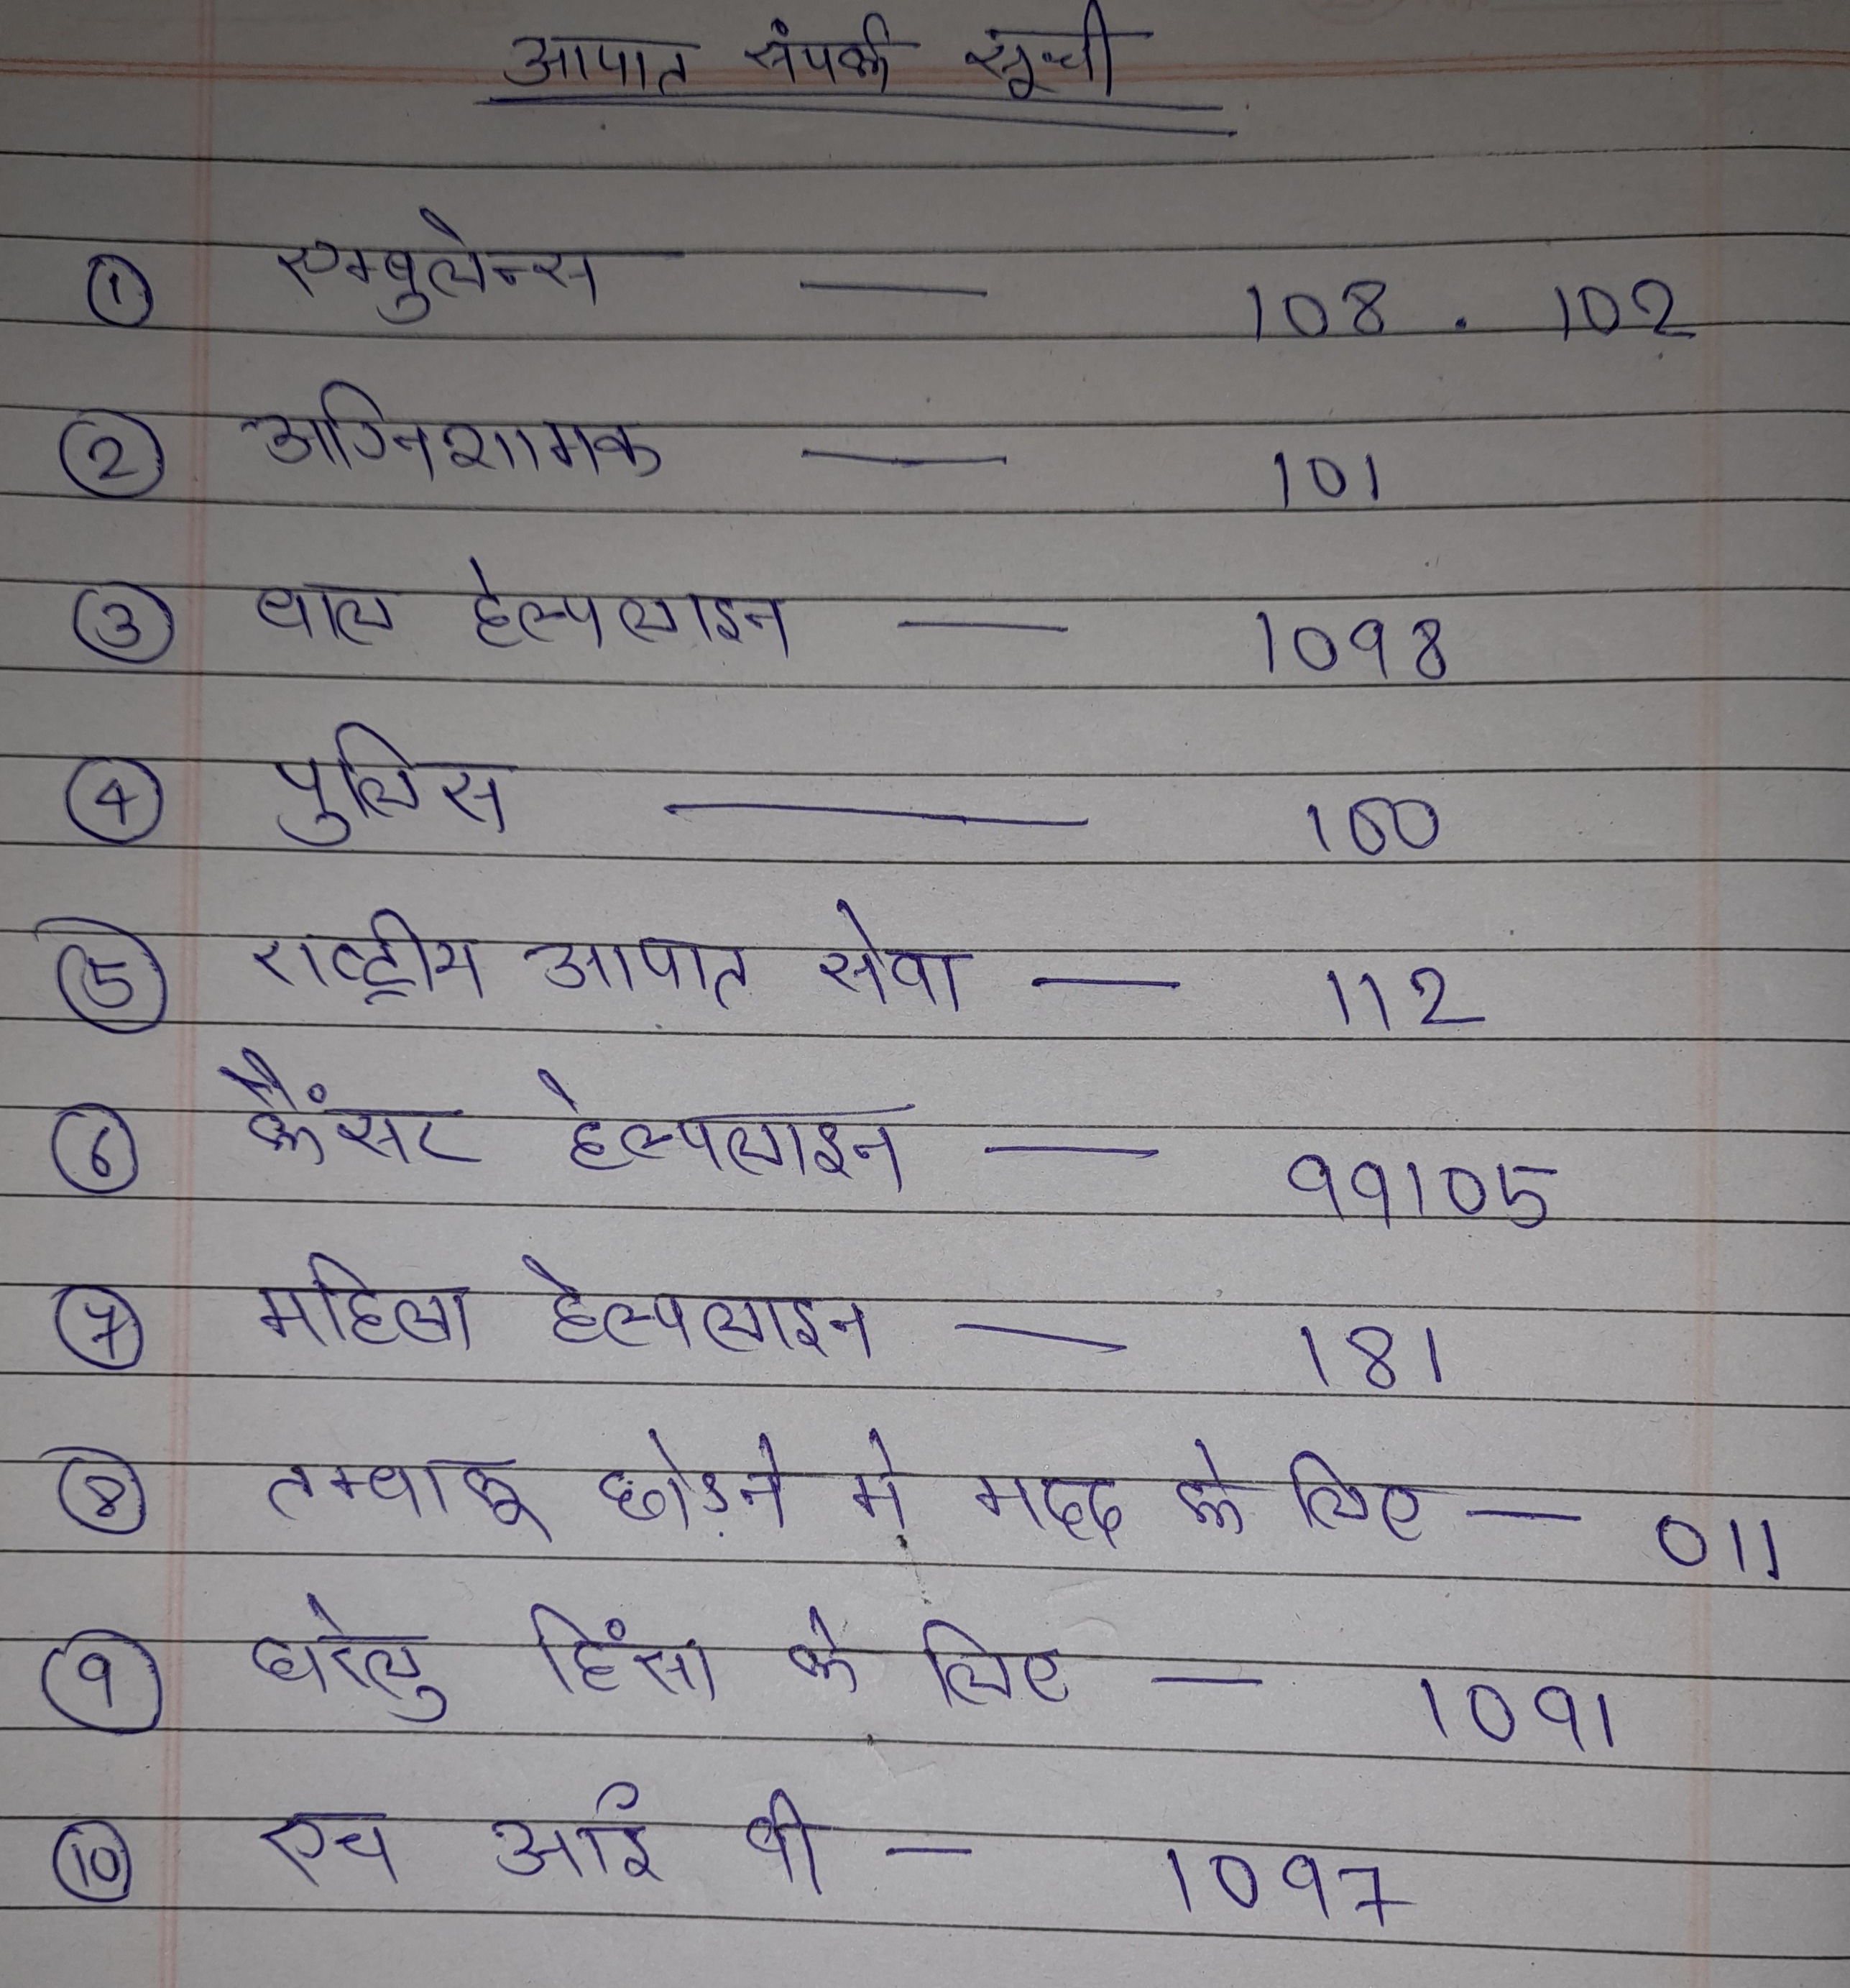 आपात संपर्क सूची
① एम्बुलेन्स — 108 . 102
② अग्निशामक — 101
③ बाल हेल्पलाइन — 1098
④ पुलिस — 100
⑤ राष्ट्रीय आपात सेवा — 112
⑥ कैंसर हेल्पलाइन — 99105
⑦ महिला हेल्पलाइन — 181
⑧ तम्बाकू छोड़ने मे मदद के लिए — 011
⑨ घरेलु हिंसा के लिए — 1091
⑩ एच आई वी — 1097